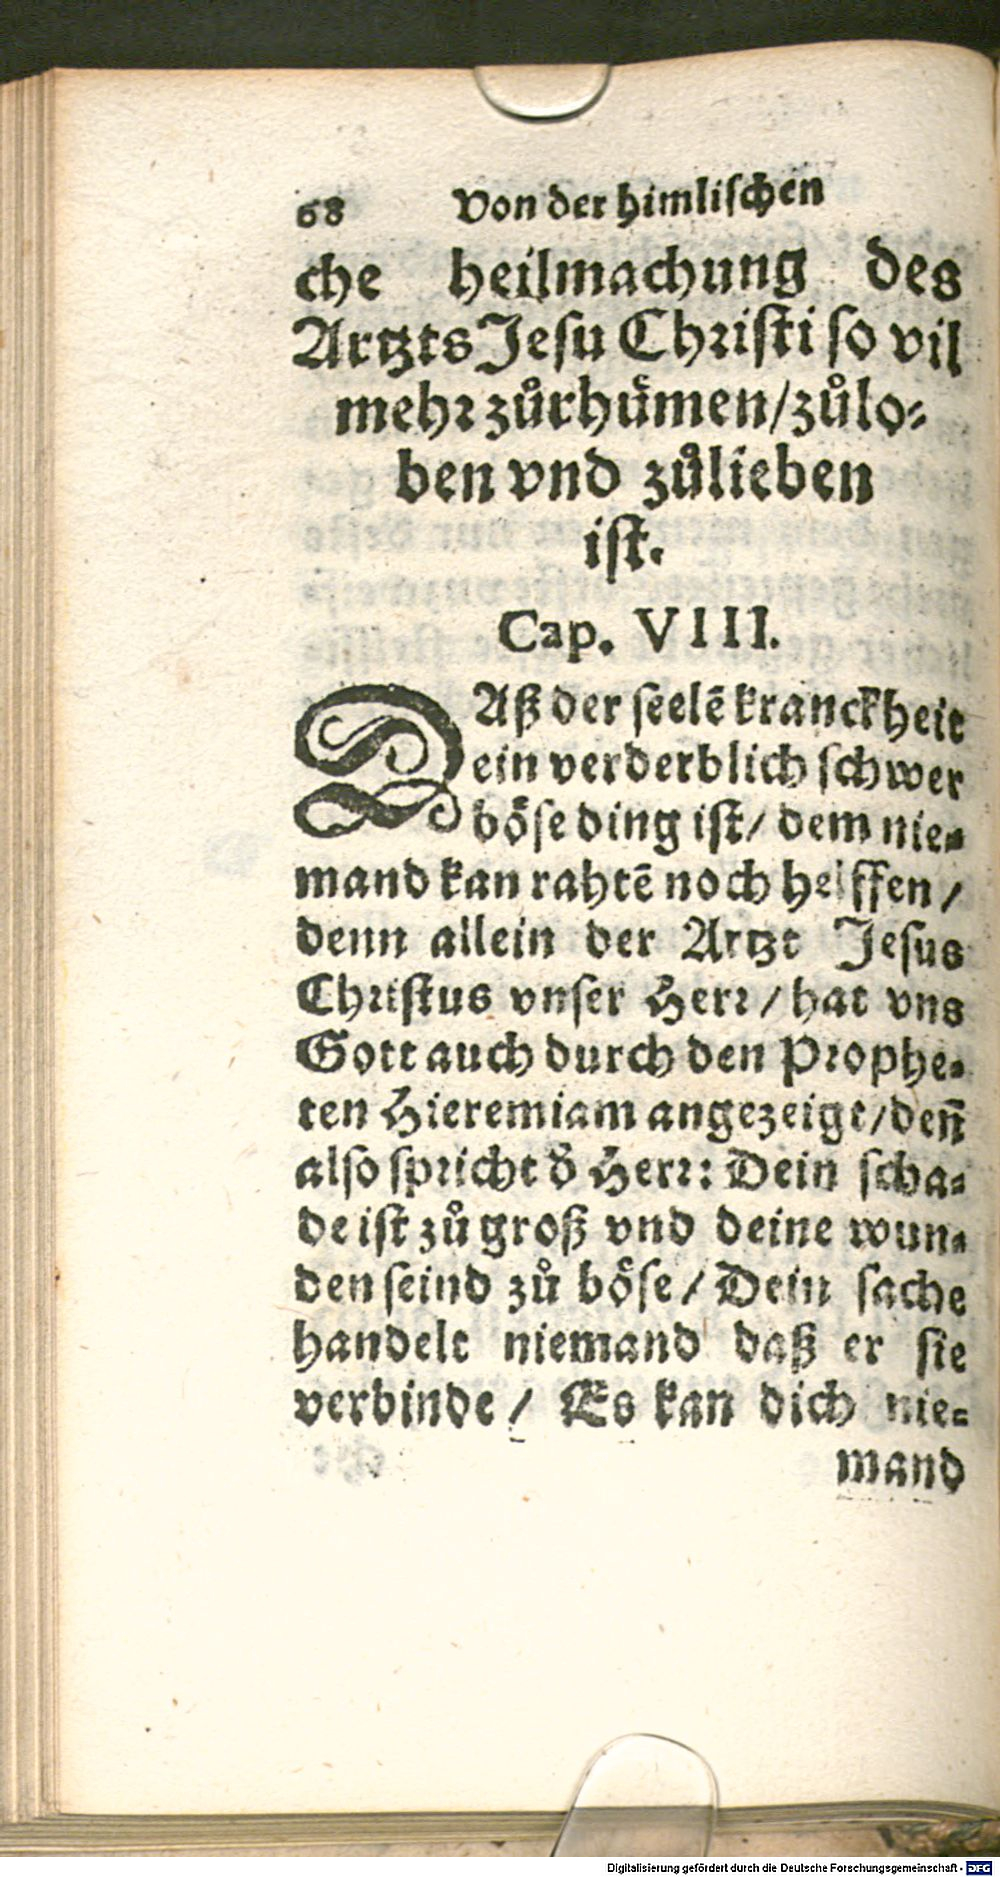 68 Von der himlischen
che heilmachung des
Artzts Jesu Christi so vil
mehr zůrhuͤmen/zůlo⸗
ben vnd zůlieben
ist.
Cap. VIII.
DAß der seelē kranckheit
ein verderblich schwer
boͤse ding ist/ dem nie⸗
mand kan rahtē noch helffen/
denn allein der Artzt Jesus
Christus vnser Herr/ hat vns
Gott auch durch den Prophe⸗
ten Hieremiam angezeigt/ deñ
also spricht d̕ Herr: Dein scha⸗
de ist zů groß vnd deine wun⸗
den seind zů boͤse/ Dein sache
handelt niemand daß er sie
verbinde/ Es kan dich nie⸗
mand
Digitalisierung gefördert durch die Deutsche Forschungsgemeinschaft - DFG